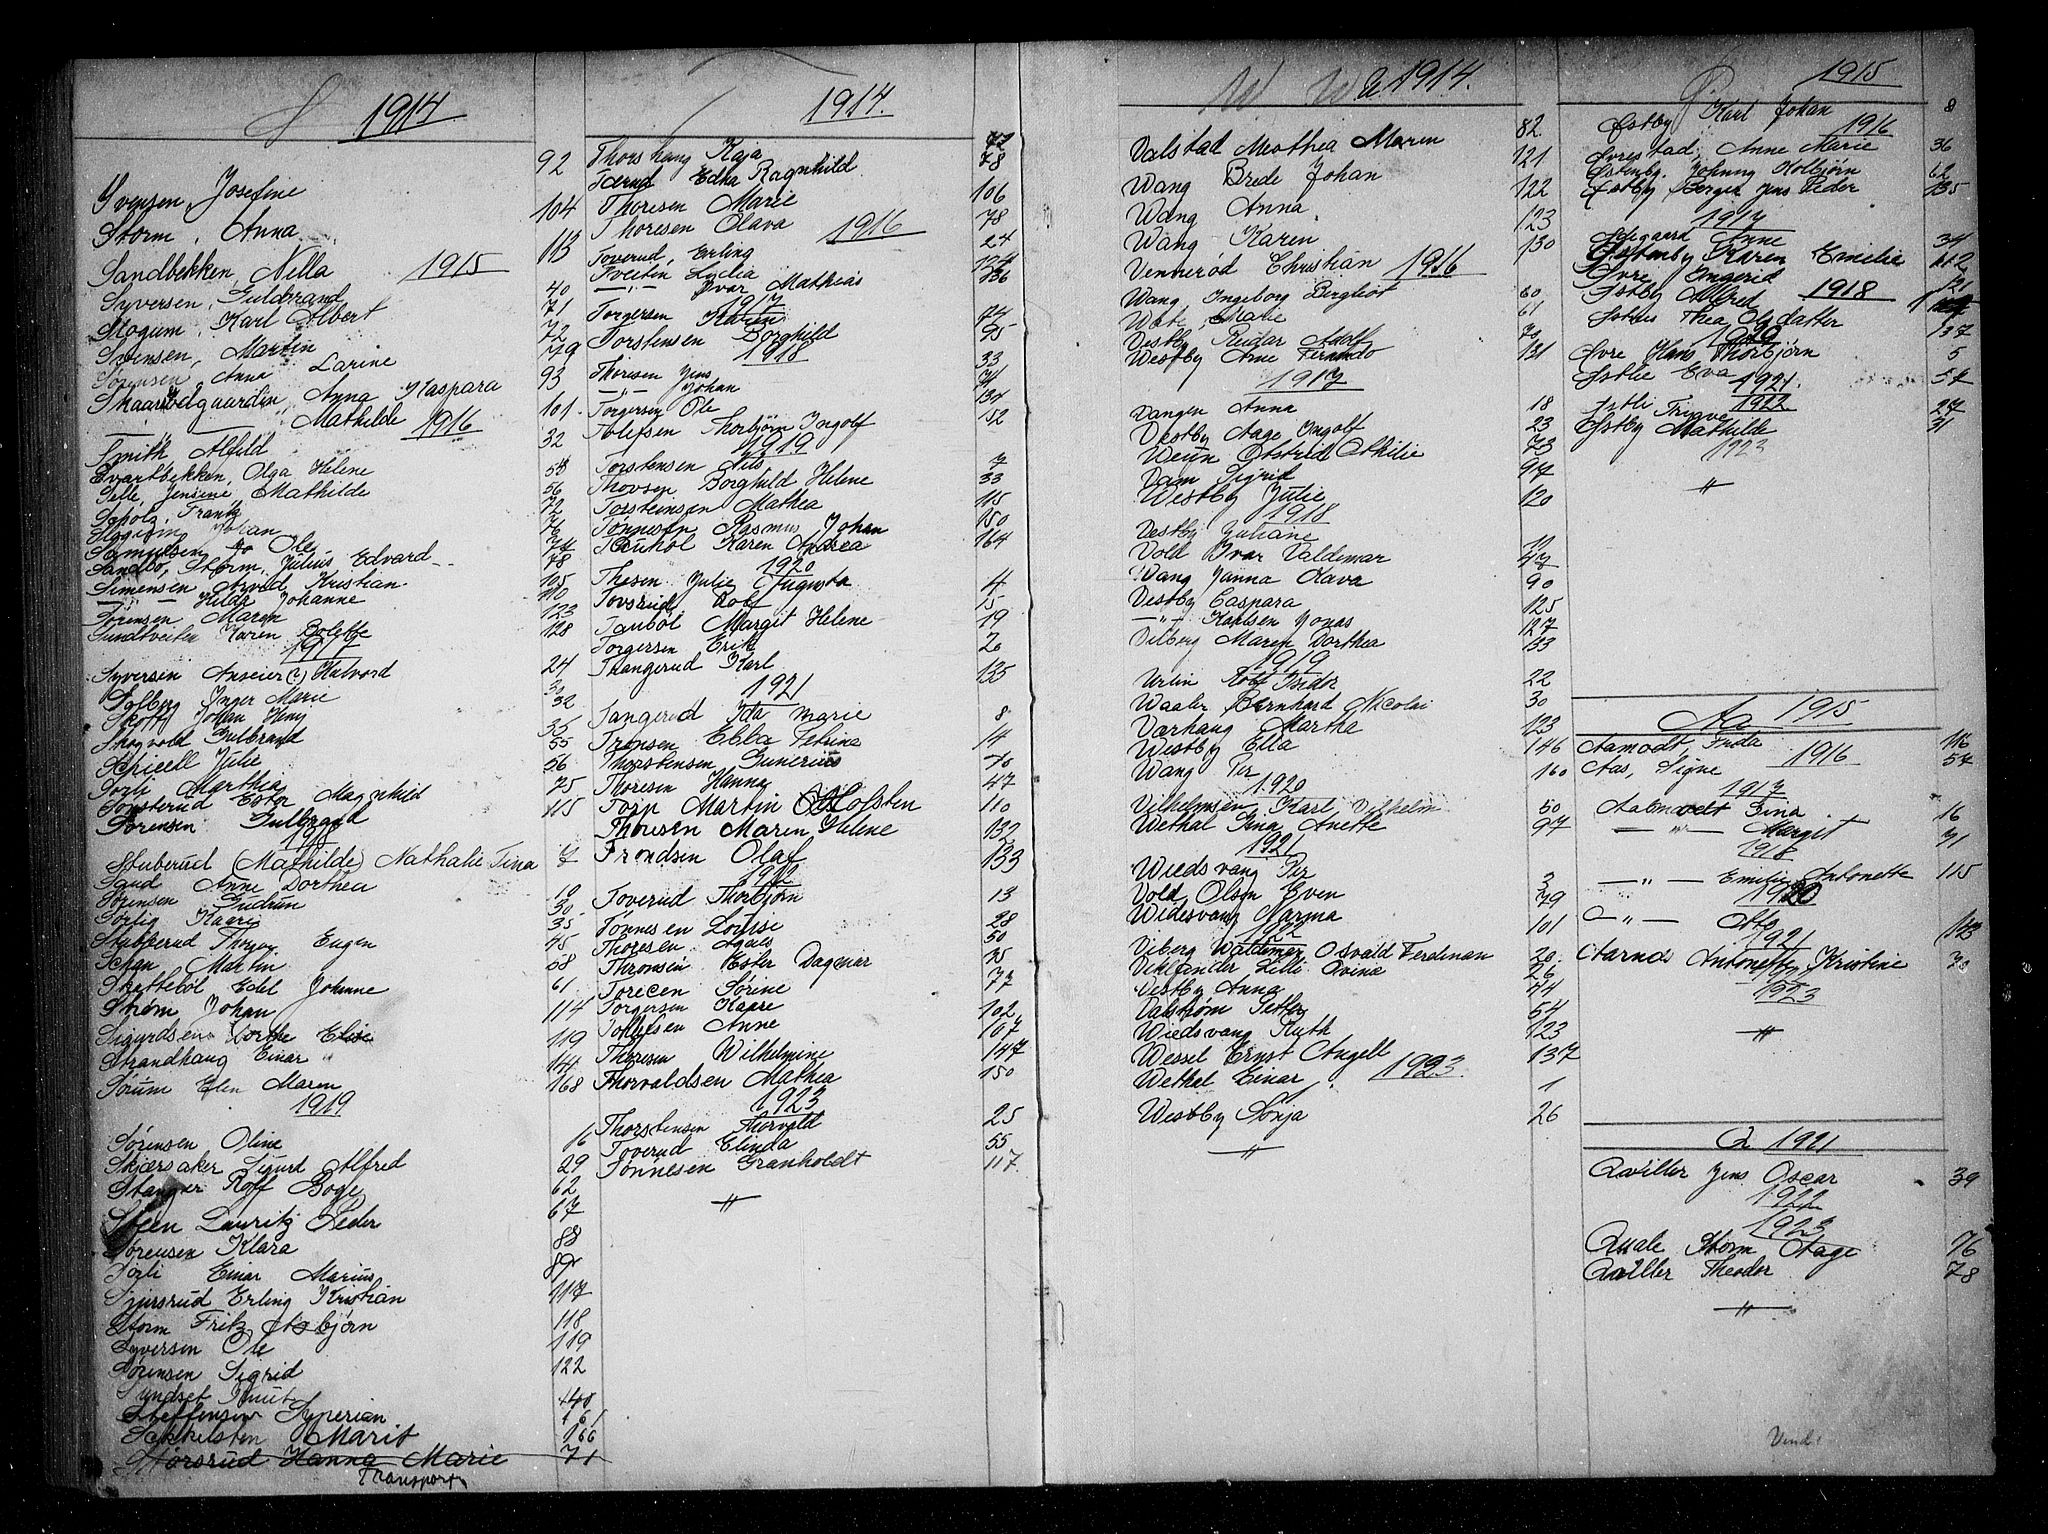 S 1914
Svensen, Josefine 92
Storm, Anna 104
Sandbekken, Nella 113
1915
Syversen, Guldbrand 40
Skogum, Karl Albert 71
Svensen, Martin 72
Sørensen, Anna Larine 79
Skaar Anna Kaspara 93
Mathilde 101
1916
Smith Alfild 32
Svartbekken, Olga Helene
Selle, Jensine Mathilde 56
Scholz, Frantz 72
Johan 76
Samuelsen Ole 74
Sandbo, Storm, Julius Edvard 78
Simensen Arvid Kristian 105
— " — Hilda Johanne 110
Sørensen Maren 123
Sundtveiten Karen Bolette 128
1917
Syversen Anseier (?) Halvord 24
Solberg Inger Marie 30
Skøtt Johan Heny 32
Skogvold Gulbrand 35
Julie 55
Sorli Marthea 56
Ester Magnhild 75
Sørensen Gulbrand 115
1918
Stuberud (Mathilde) Nathalie Tina
Sand Anne Dorthea 19
Sørensen Gudrun 30
Sørlig Kaare 35
Stubberud Thorgny Eugen 45
Schau Martin 58
Skretteböl Edel Johanne 61
Strøm Johan 114
Sigurdsen Dorthe Elise 119
Strandhaug Einar 144
Sørum Elen Maren 168
1919
Sørensen Oline 16
Skjærsaker Sigurd Alfred 29
Stanger Rolf Boge 62
Steen Lauritz Peder 67
Sørensen Klara 88
Sorli Einar Marius 89
Sjursrud Erling Kristian 117
Storm Fritz Asbjørn 118
Syversen Ole 119
Sørensen Sigrid 122
Sundset Knut
Steffensen Syperian 161
Sekkelsten Marit 166
Hanna Marie 71
Transport
1914
Thorshaug Kaja 72
Tærud Edna Ragnhild 78
Thoresen Marie 106
Thoresen Olava 78
1916
Toverud, Erling 24
Tveiten Lydia
— " — Ivar Mathias
1917
Torgersen Karen 74
Torstensen Borghild 95
1918
Thoresen Jens 33
— " — Johan
Torgersen Ole 134
Tolefsen Thorbjørn Ingolf 152
1919
Torstensen Nils 7
Thovsen Borghild Helene 33
Torsteinsen Mathea 115
Tönnesen Rasmus Johan 150
Karen Andrea 164
1920
Thesen Julie Augusta 4
Tovsrud Rolf 15
Tauböl Margit Helene 19
Torgersen Erik 26
Thangerud Karl 135
1921
Tangerud Ida Marie 8
Tronsen Ebba Petrine 14
Thorstensen Gunerius 40
Thoresen Hanna 47
Torp Martin Holsten 110
Thoresen Maren Helene 132
Trondsen Olaf 133
1922
Toverud Thorbjørn 13
Tönnesen Louise 28
Thoresen Agnes 50
Thronsen Ester Dagmar
Torecen Sörine 77
Torgersen Kaare 102
Tollefsen Anne 107
Thoresen Wilhelmine 147
Thorvaldsen Mathea 150
1923
Thorstensen Thorvald 25
Toverud Elinda 55
Tønnesen Granholdt 117
— " —
W 1914
Valstad Mothea Maren 82
Wang Brede Johan 121
Wang Anna 122
Wang Karen 123
Vennerød Christian 130
1916
Wang, Ingeborg Bergliot 60
Marie 61
Vestby Reidar Adolf 70
Westby Arne Fernando 131
1917
Vangen Anna 18
Vestby Aage Ingolf 23
Weun Othilie 73
Vam Sigrid 97
Westby Julie 120
1918
Vestby Juliane
Vold Ivar Valdemar
Wang Janna Kava 90
Vestby Caspara 125
— " — Karlsen Jonas 127
Vilberg Maren Dorthea 133
1919
Urlin Rolf Isidor 22
Waaler Bernhard Nicolai 30
Varhaug Martha 123
Westby Ella 146
Wang Per 160
1920
Vilhelmsen Karl Vilhelm 50
Wethal Gina Anette 97
1921
Wiedsvang Per 3
Vold, Olsen Even 79
Widesvang Narma 101
1922
Viberg Waldimar Osvald Ferdinan 20
Lilli Ovina 26
Vestby Anna 44
Valstrøm Petter 54
Wiedsvang Ruth 123
Wessel Ernst Angell 137
Wethal Einar 1
1923
Westby Sonja 26
— " —
Ø 1915
Østby Karl Johan 8
1916
Øvrestad, Anne Marie 36
Østenby, Johnny Kolbjørn 62
Østby Berger Jens Peder 135
1917
Ødegaard Anne 34
Østenby Karen Emilie 112
Øvre Ingerid 121
Østby Alfred
1918
Østhus Thea Olsdatter 137
Øvre Hans Thorbjørn 5
Østlie Eva 57
1921
Østli Trygve 27
1922
Østby Mathilde 31
1923
"
Aa 1915
Aamodt, Frida 116
1916
Aas, Signe 57
1917
Aamodt Gina 16
— " — Margit 31
1918
— " — Emilie Antonette 115
1920
— " — Otto 143
1921
Aarnes Antonette Kristine
1923
— " —
Q 1921
Qviller Jens Oscar 39
1922
1923
Quale Storm Aage 76
Qviller Theodor 78
— " —
Vend